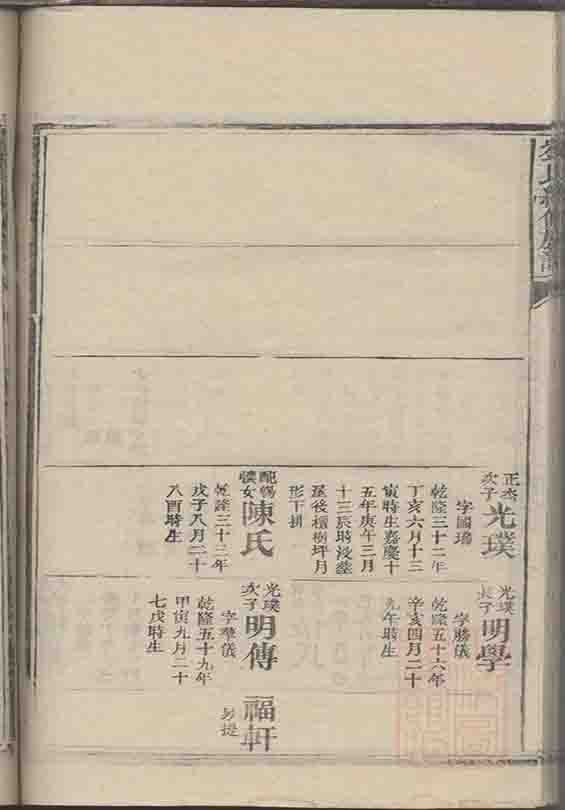 氏續修族譜
正杰次子 光璞
字國璠
乾隆三十二年
丁亥六月十三
寅時生嘉慶十
五年庚午三月
十三辰時歿葬
屋後檀樹坪月
形丁拱
配
女 陳氏
乾隆三十三年
戊子八月二十
八酉時生
光璞長子 明學
字勝儀
乾隆五十六年
辛亥四月二十
九午時生
光璞次子 明傳
字華儀
乾隆五十九年
甲寅九月二十
七戌時生
福軒
另提